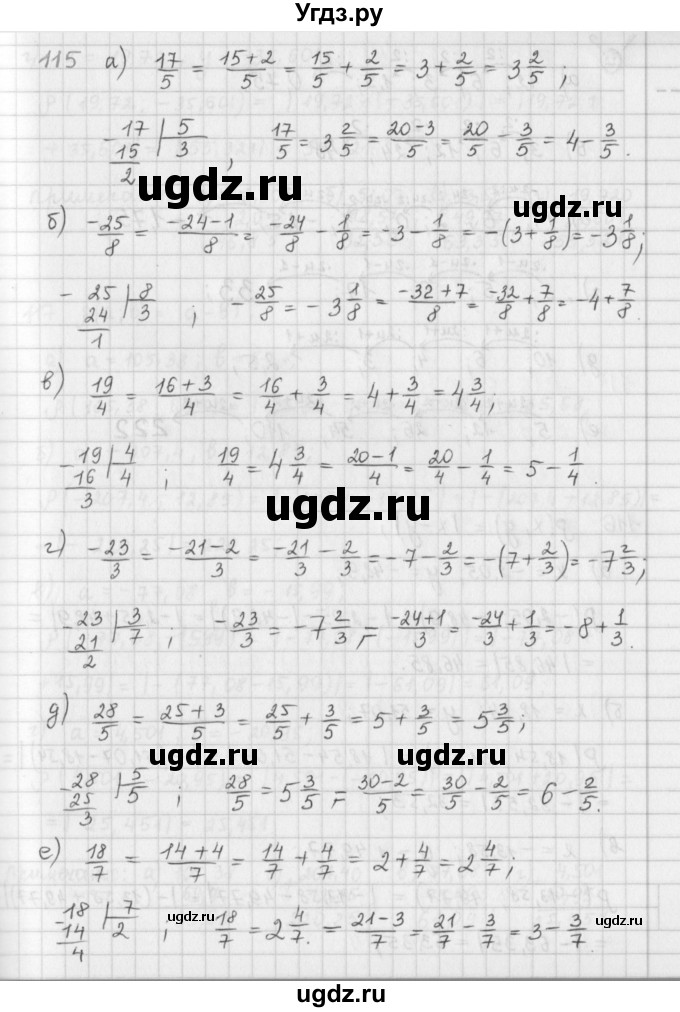 Угдз.ру
115 а) 17/5 = (15+2)/5 = 15/5 + 2/5 = 3 + 2/5 = 3 2/5;
-17 | 5
15 | 3
2 ; 17/5 = 3 2/5 = (20-3)/5 = 20/5 - 3/5 = 4 - 3/5.
ugdz.ru ugdz.ru
б) -25/8 = (-24-1)/8 = -24/8 - 1/8 = -3 - 1/8 = -(3 + 1/8) = -3 1/8;
- 25 | 8
24 | 3
1 ; -25/8 = -3 1/8 = (-32+7)/8 = -32/8 + 7/8 = -4 + 7/8.
в) 19/4 = (16+3)/4 = 16/4 + 3/4 = 4 + 3/4 = 4 3/4;
-19 | 4
16 | 4
3 ; 19/4 = 4 3/4 = (20-1)/4 = 20/4 - 1/4 = 5 - 1/4.
ugdz.ru
г) -23/3 = (-21-2)/3 = -21/3 - 2/3 = -7 - 2/3 = -(7 + 2/3) = -7 2/3;
-23 | 3
21 | 7
2 ; -23/3 = -7 2/3 = (-24+1)/3 = -24/3 + 1/3 = -8 + 1/3.
д) 28/5 = (25+3)/5 = 25/5 + 3/5 = 5 + 3/5 = 5 3/5;
ugdz.ru ugdz.ru
-28 | 5
25 | 5
3 ; 28/5 = 5 3/5 = (30-2)/5 = 30/5 - 2/5 = 6 - 2/5.
е) 18/7 = (14+4)/7 = 14/7 + 4/7 = 2 + 4/7 = 2 4/7;
-18 | 7
14 | 2
4 ; 18/7 = 2 4/7. = (21-3)/7 = 21/7 - 3/7 = 3 - 3/7.
ugdz.ru ugdz.ru
ugdz.ru